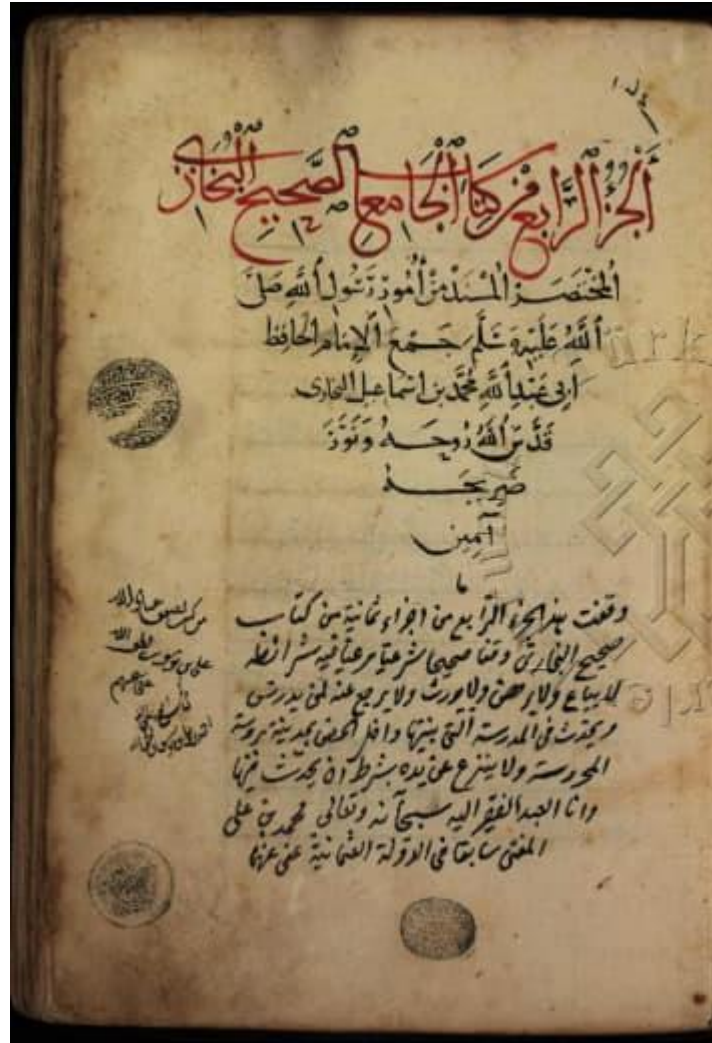 ١٥٤
الجزؤ الرابع من كتاب الجامع الصحيح البخاري
المختصر المسند من أمور رسول الله صلى
الله عليه وسلم جمع الإمام الحافظ
أبي عبد الله محمد بن اسماعيل البخاري
قدس الله روحه ونور
ضريحه
آمين
وقفت هذا الجزء الرابع من اجزاء ثمانية من كتاب
صحيح البخاري وقفا صحيحا شرعيا مرعيا فيه شرائطه
لا يباع ولا يرهن ولا يورث ولا يرجع عنه لمن يدرس
ويحدث في المدرسة التي بنيتها داخل الحصن بمدينة بروسة
المحروسة ولا ينزع عن يده بشرط أن يحدث فيها
وانا العبد الفقير اليه سبحانه وتعالى محمد بن علي
المفتي سابقا في الدولة العثمانية عفي عنهما
من كتب
علي بن
عفي عنهم